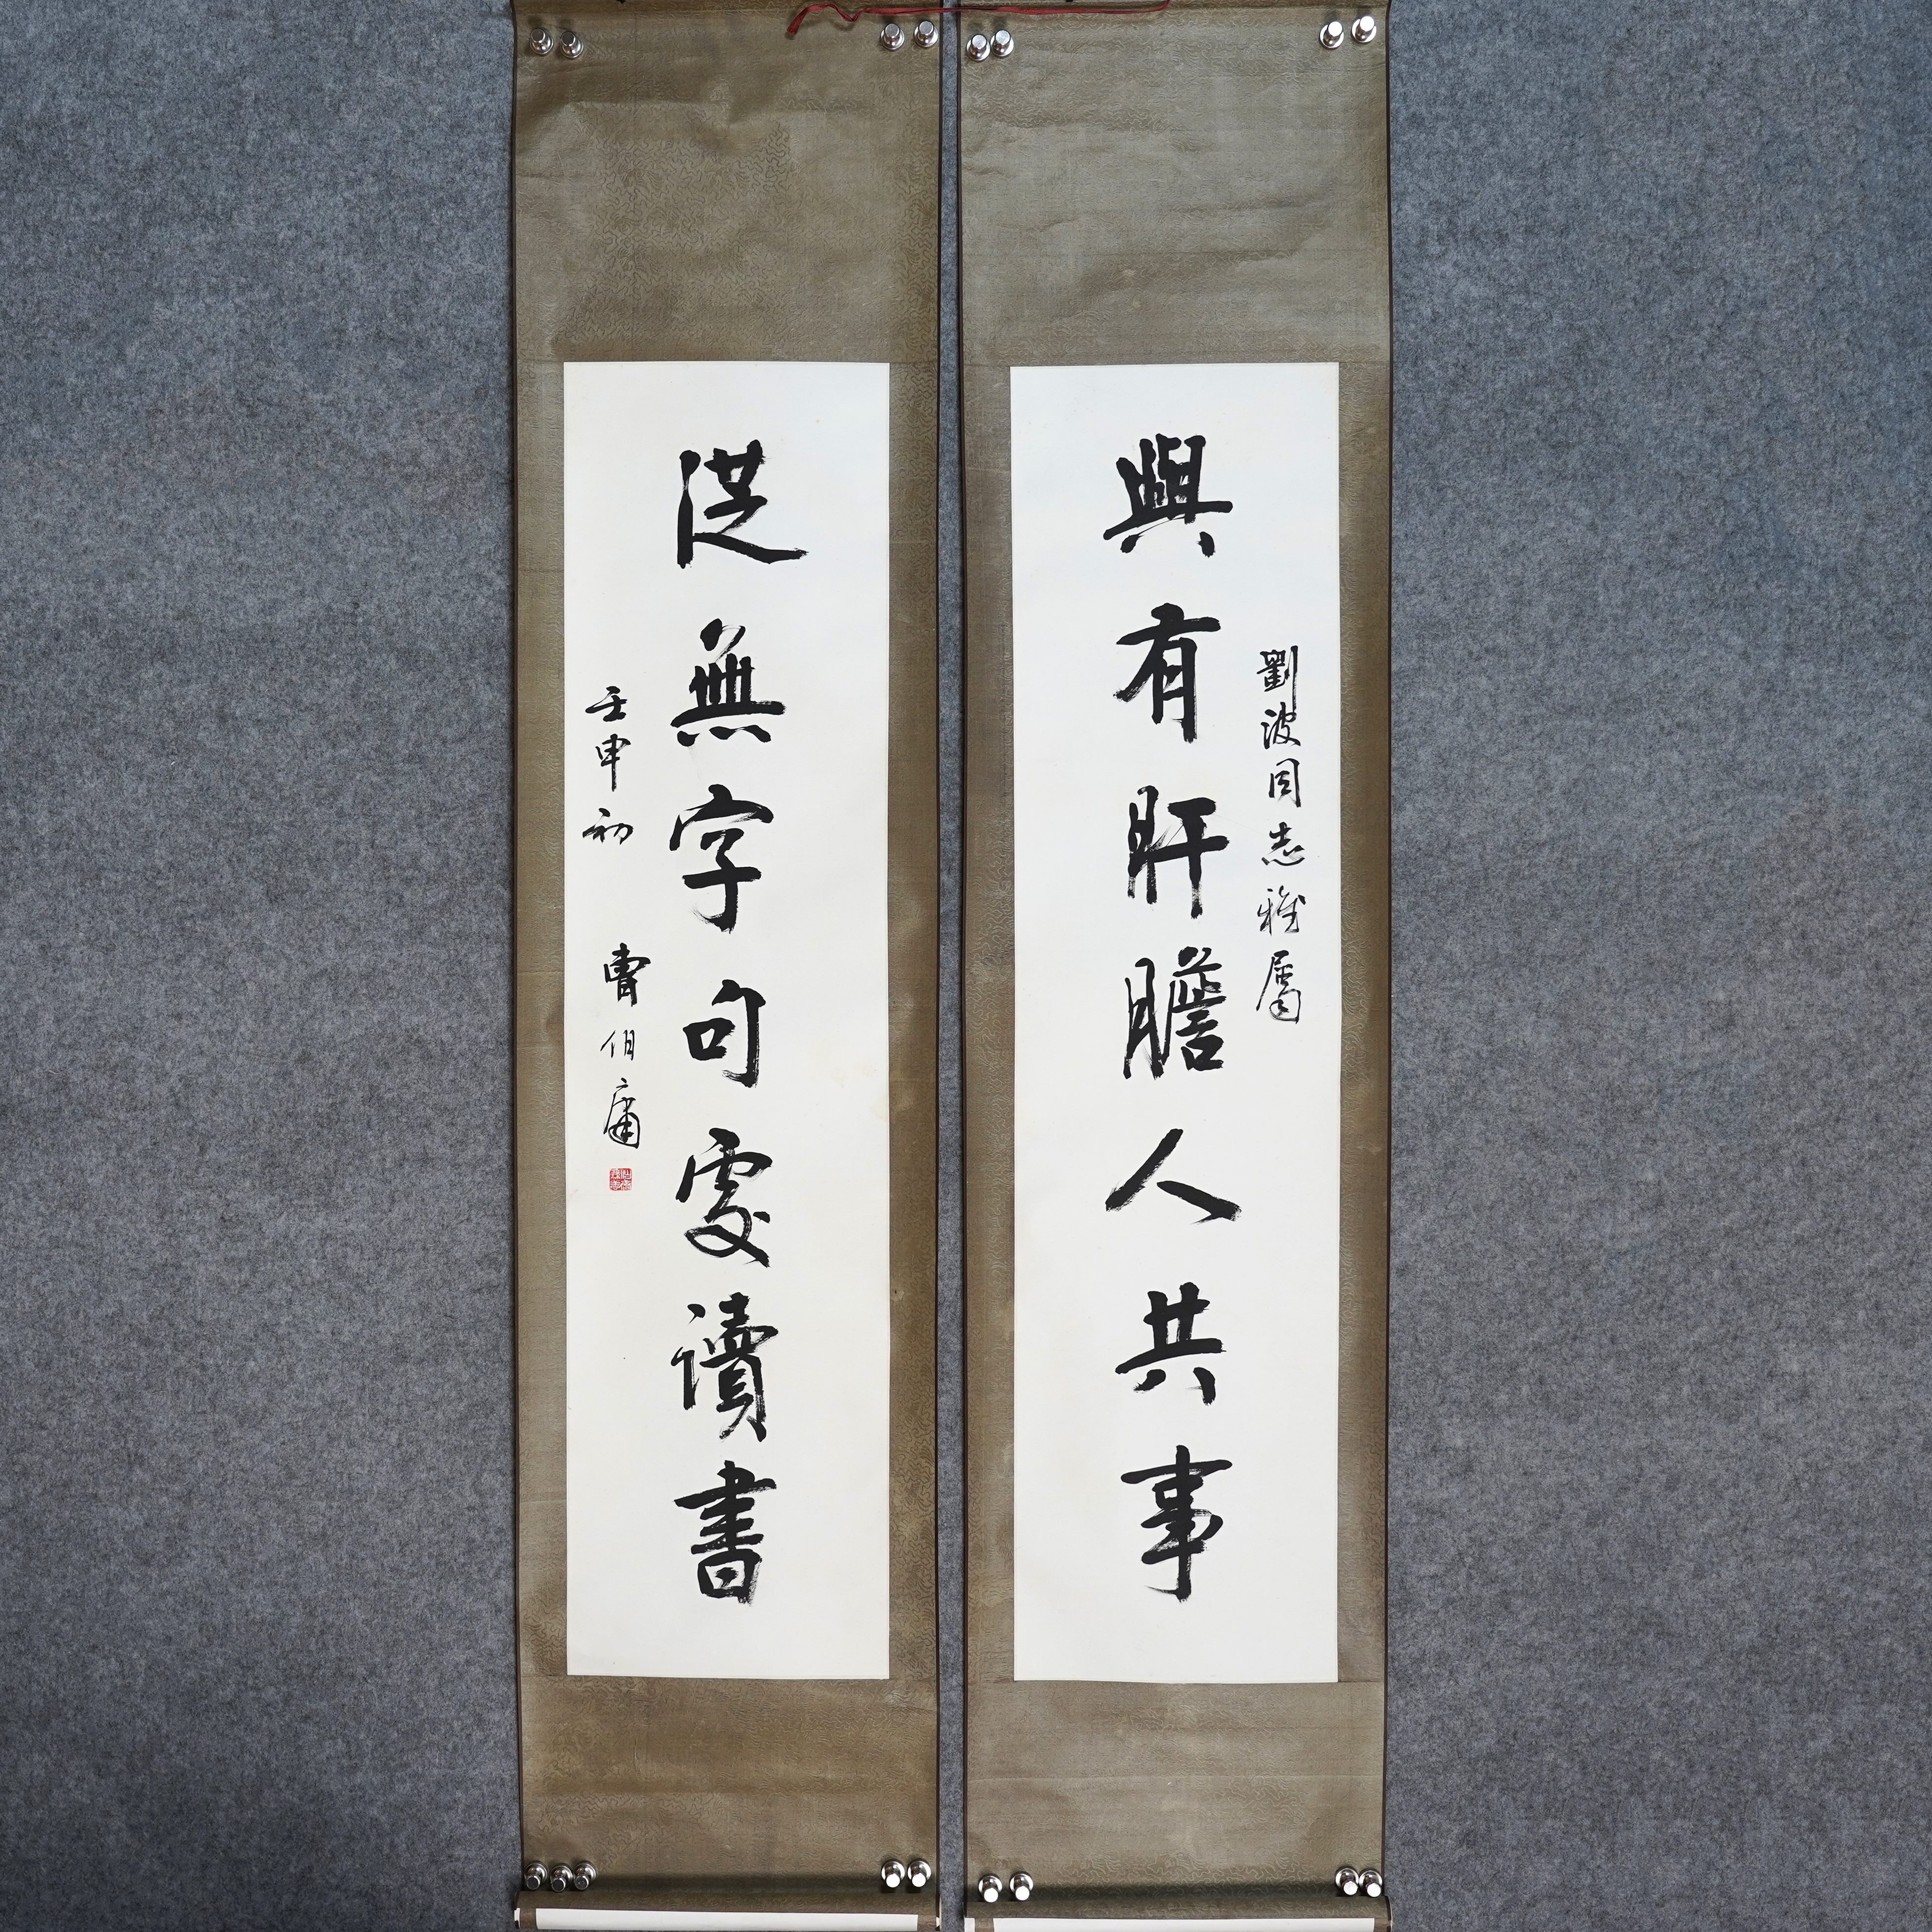 劉波同志雅屬
與有肝膽人共事
從無字句處讀書
壬申初 曹伯庸